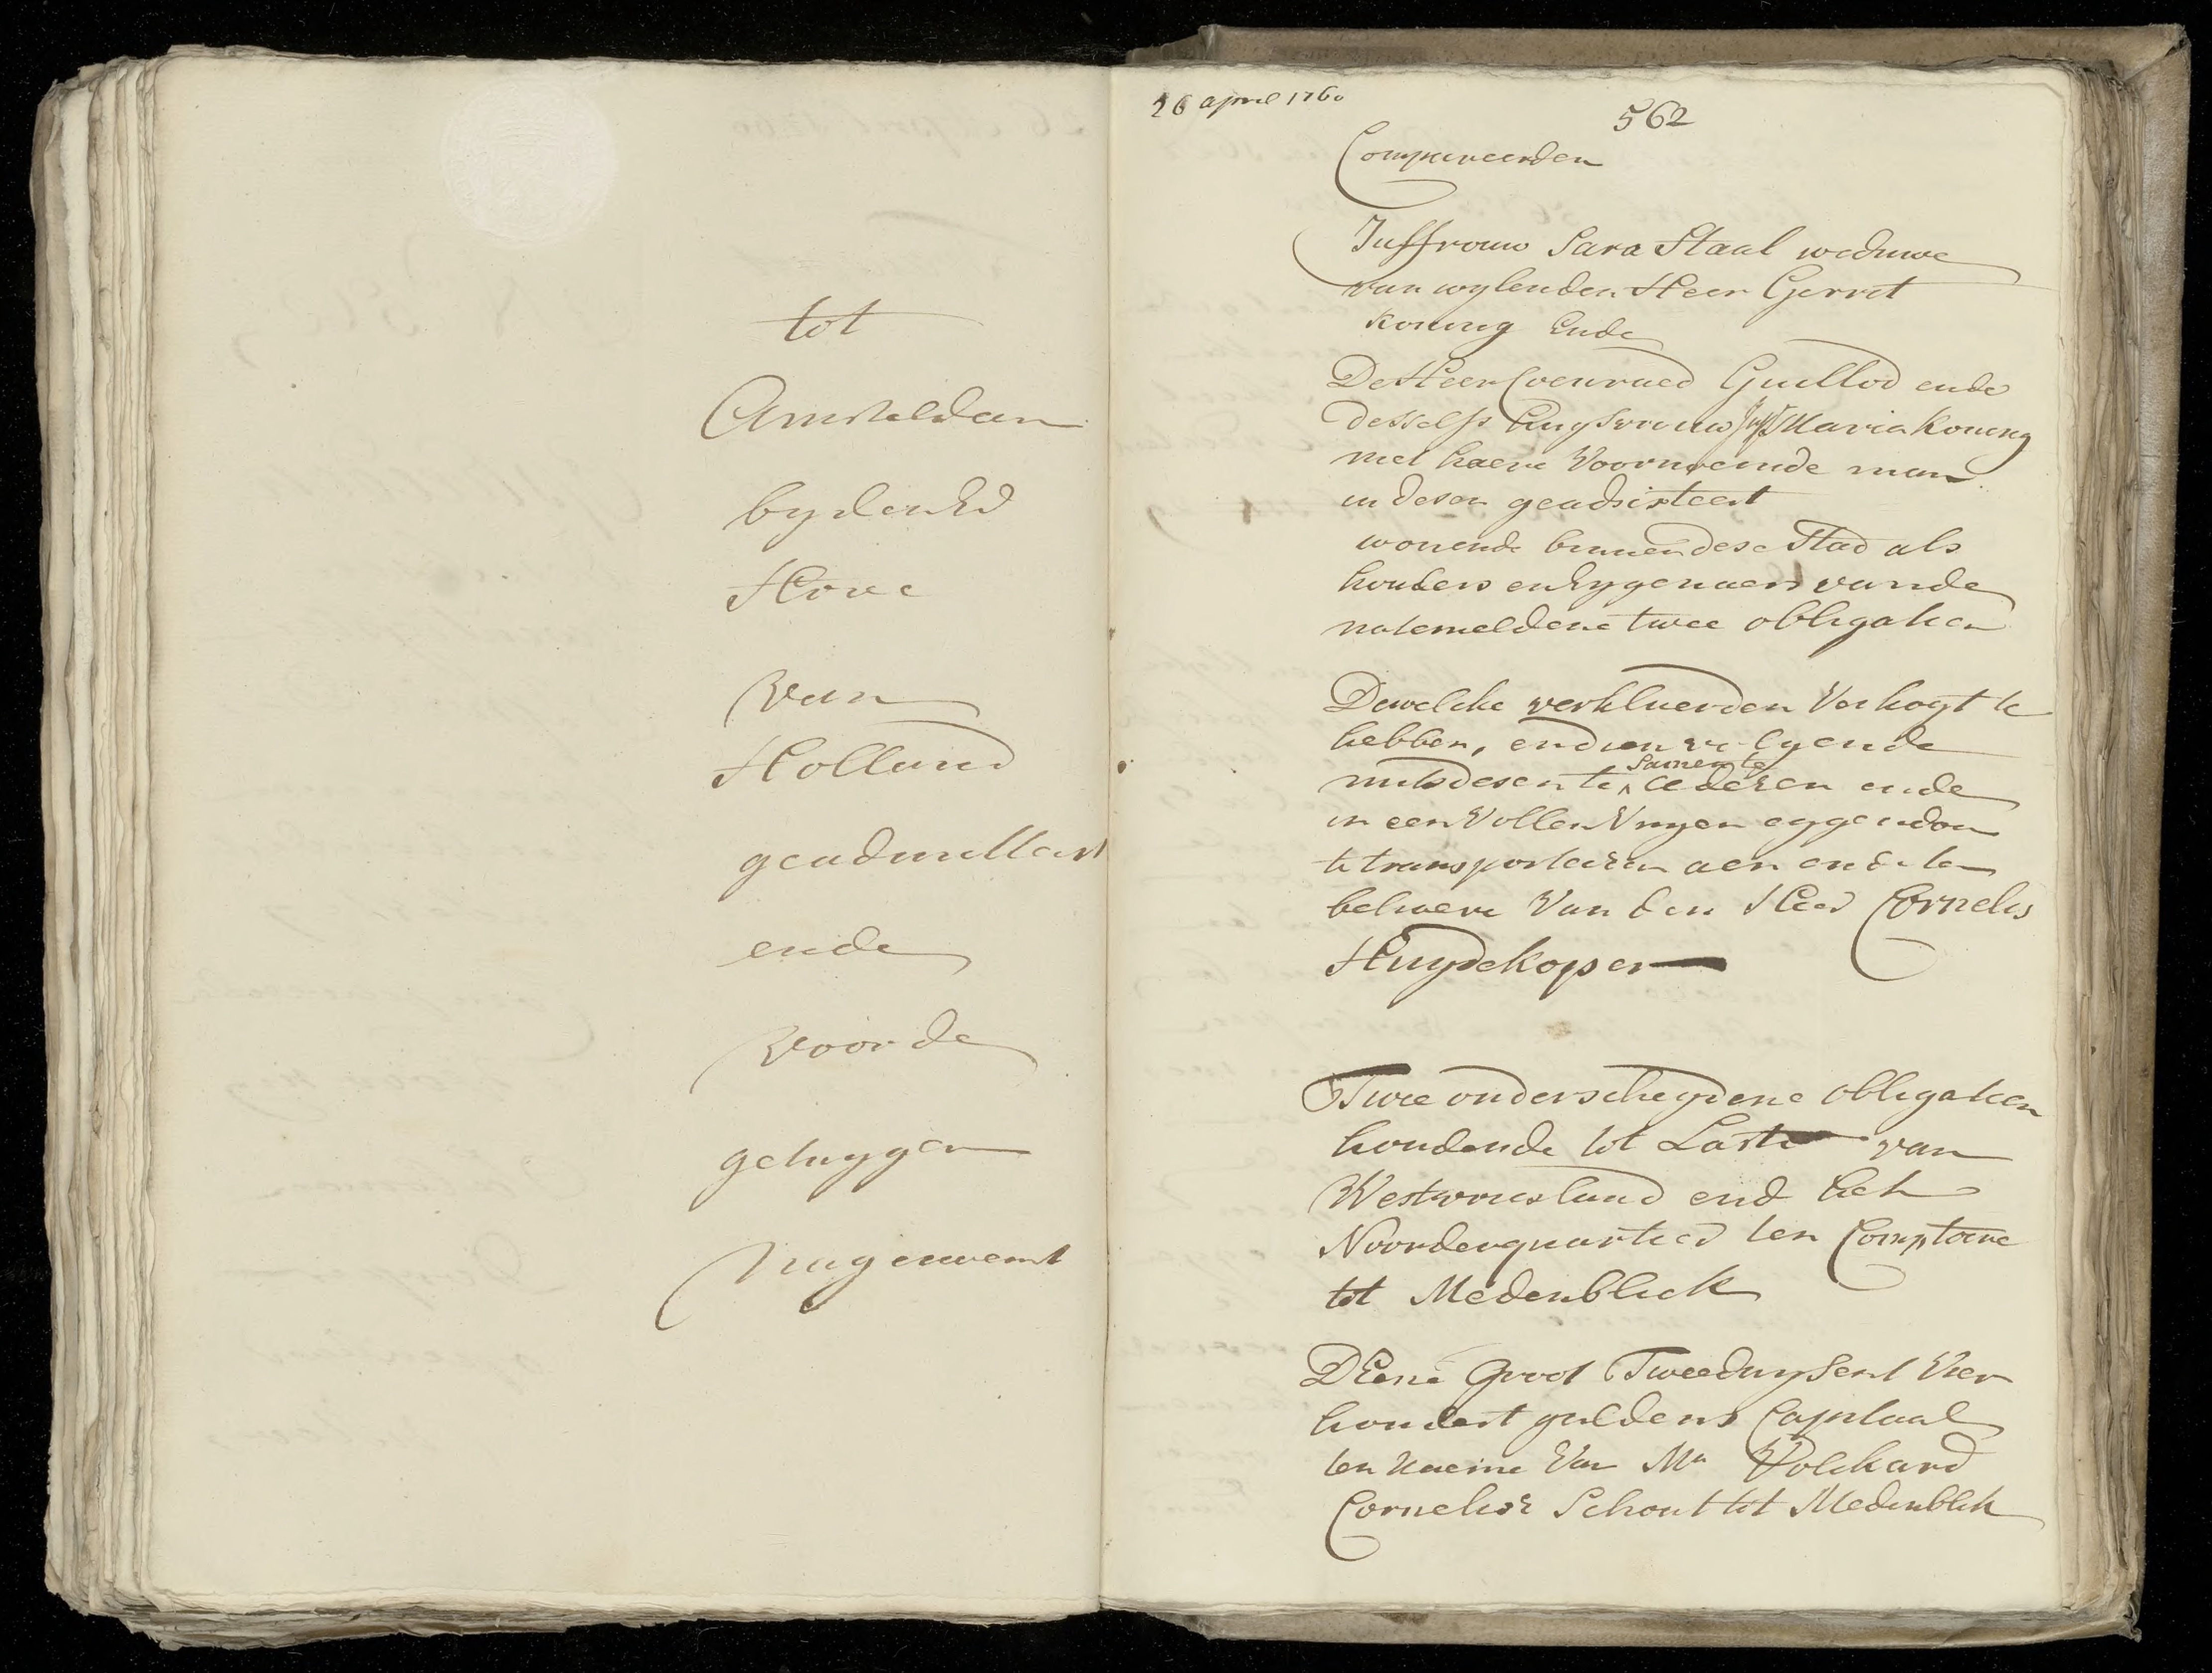 tot
Amsteldam
by den Ed
Hove
van
Holland
geadmitteert
ende
voor de
getuygen
nagenoemt
26 april 1760
562
Compareerden
Juffrouw Sara Staal weduwe
van wylen den Heer Gerrit
Koning Ende
De Heer Coenraed Guillod ende
desselfs Huysvrouw Juffr Maria Koning
met haere Voornoemde man
in desen geadsisteert
wonende binnen dese Stad als
houders en Eygenaers van de
natemeldene twee obligatien
Dewelcke verklaerden Verkogt te
hebben, ende in volgende
mits desen te cederen ende
Samen te
in een Vollen Vryen eygendom
te transporteren aen ende ten
behoeve Van den Heer Cornelis
Huydekoper
Twee onderscheydene obligatien
houdende tot Laste van
Westvriesland end het
Noorderquartier ten Comptoire
tot Medenblick
D'Eene Groot Tweeduysent Vier
hondert guldens Capitaal
ten Naeme Van Mr Volckard
Cornelisz Schout tot Medenblik